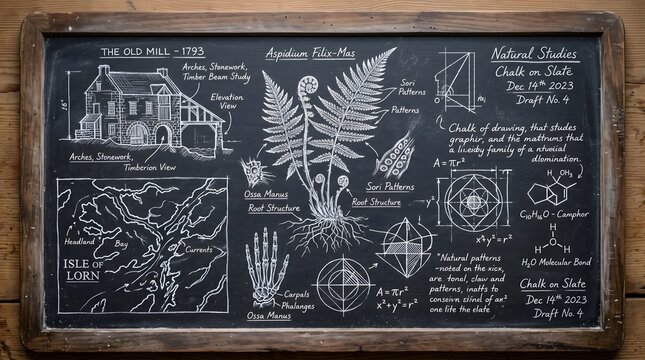 THE OLD MILL - 1793
Arches, Stonework,
Timber Beam Study
Elevation
View
16"
Arches, Stonework,
Timberion View
Headland
Bay
Currents
ISLE OF
LORN
Aspidium Filix-Mas
Sori
Patterns
Patterns
Ossa Manus
Root Structure
Sori Patterns
Root Structure
Carpals
Phalanges
Ossa Manus
A = πr²
x²+y² = r²
Natural Studies
Chalk on Slate
Dec 14th 2023
Draft No. 4
Chalk of drawing, that studes
graphier, and the
family of a
dlomination.
A = πr²
y²
x²+y² = r²
OH₃
C₁₀H₁₆O - Camphor
H₂O Molecular Bond
"Natural patterns
-noted on the xicx,
are tonol, claw and
patterns, inatts to
of an²
one lite the elate
Chalk on Slate
Dec 14th 2023
Draft No. 4